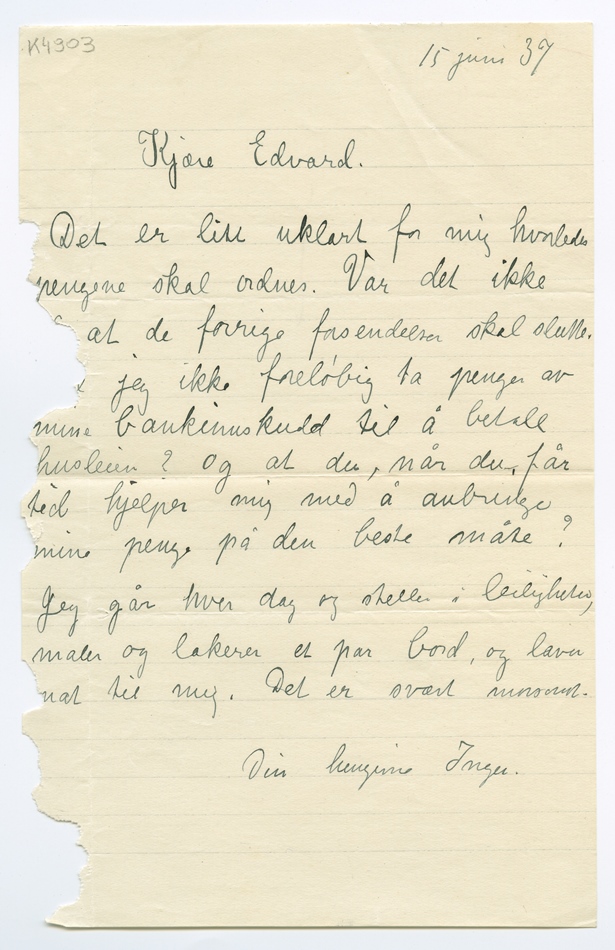 K4903
15 juni 37
Kjære Edvard.
Det er litt uklart for mig hvorledes
pengene skal ordnes. Var det ikke
at de forrige forsendelser skal slutte.
jeg ikke foreløbig ta penger av
mine bankinnskudd til å betale
husleien? Og at du, når du får
tid hjelper mig med å anbringe
mine penge på den beste måte?
Jeg går hver dag og steller i leiligheten,
maler og lakerer et par bord, og laver
mat til mig. Det er svært morsomt.
Din hengivne Inger.